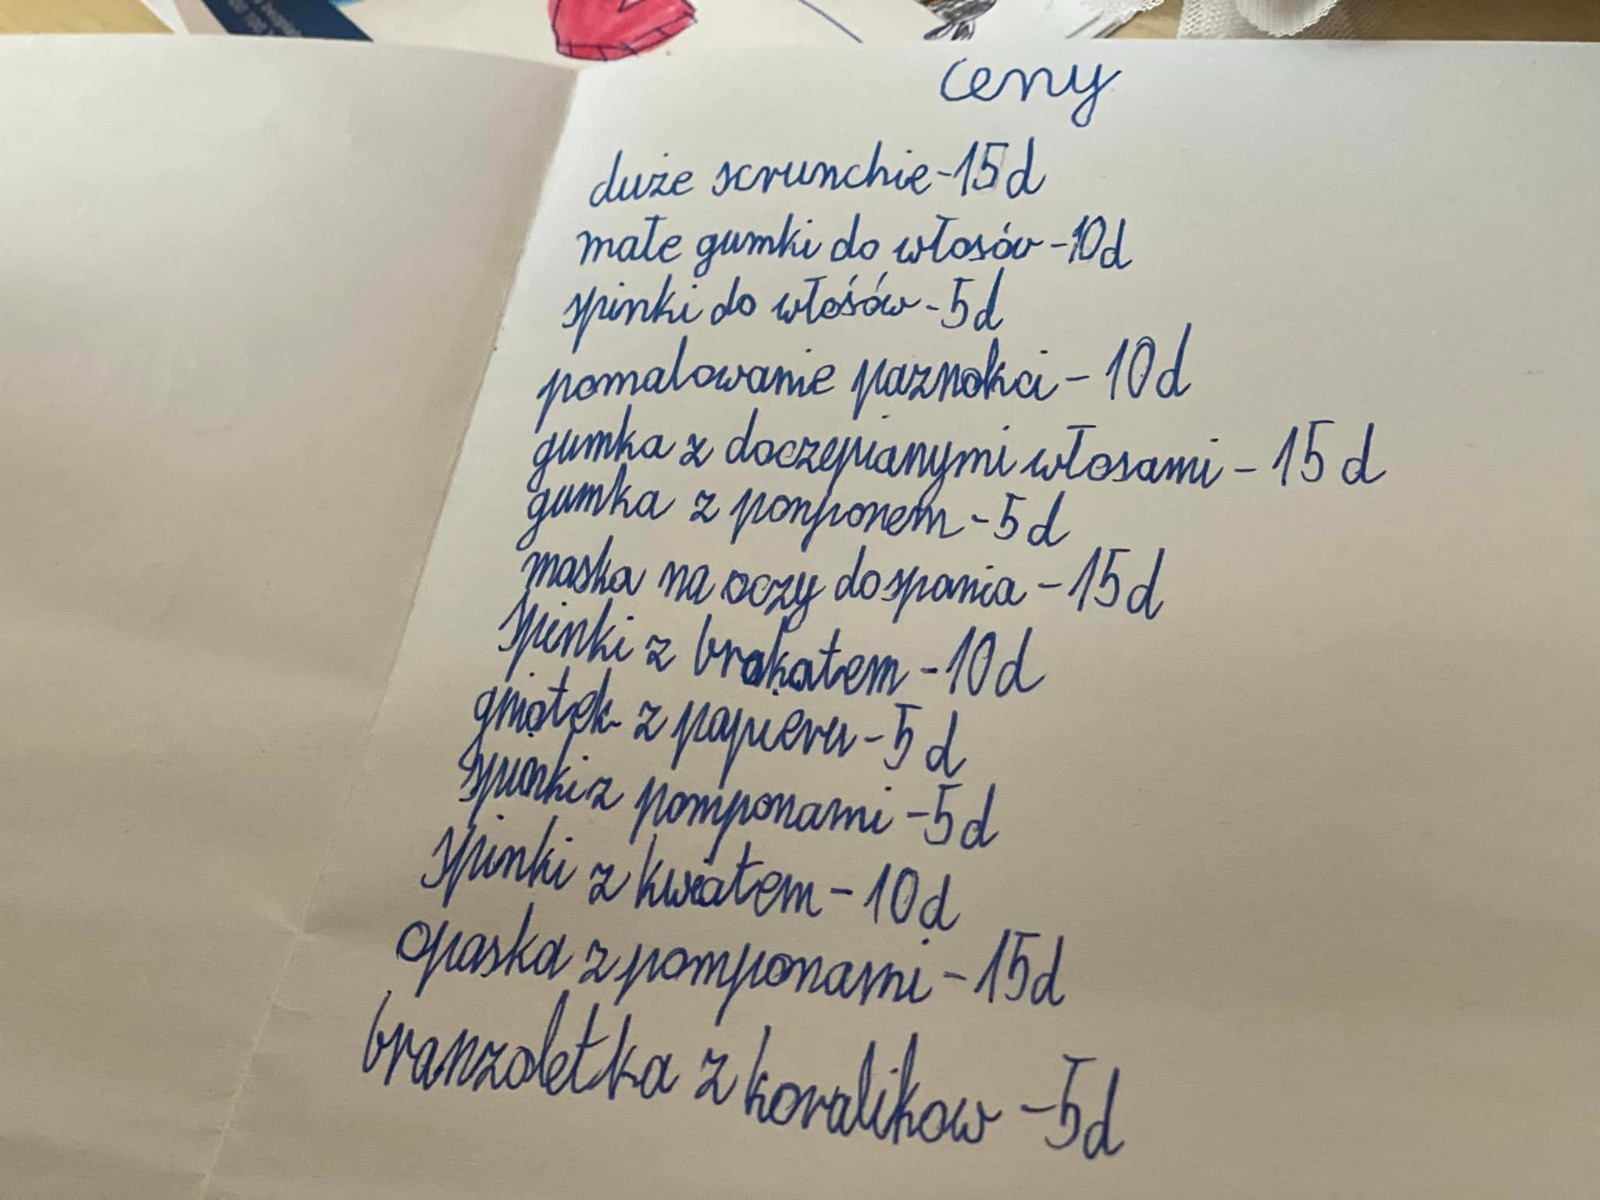 ceny
duże scrunchie-15d
małe gumki do włosów-10d
spinki do włośów-5d
pomalowanie paznokci-10d
gumka z doczepianymi włosami-15d
gumka z ponponem-5d
maska na oczy do spania-15d
spinki z brokatem-10d
gniotek z papieru-5d
spinki z pomponami-5d
spinki z kwiatem-10d
opaska z pomponami-15d
branzoletka z koralikow-5d